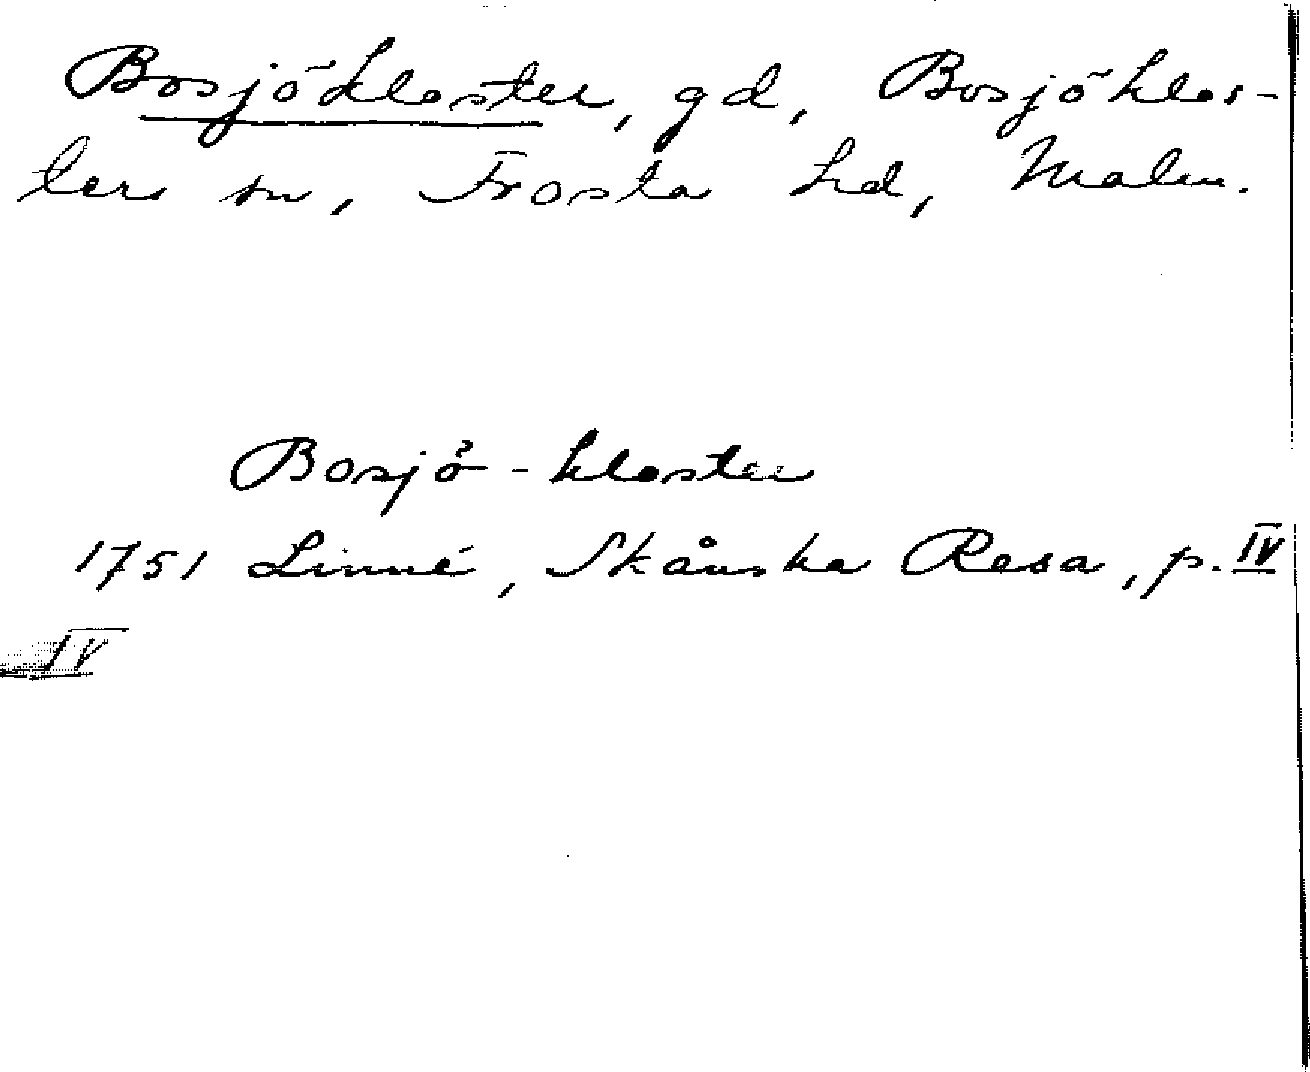 Bosjökloster, gd, Bosjöklos-
ter sn, Frosta hd, Malm.
Bosjö-kloster
1751 Linné, Skånska Resa, p. IV
IV